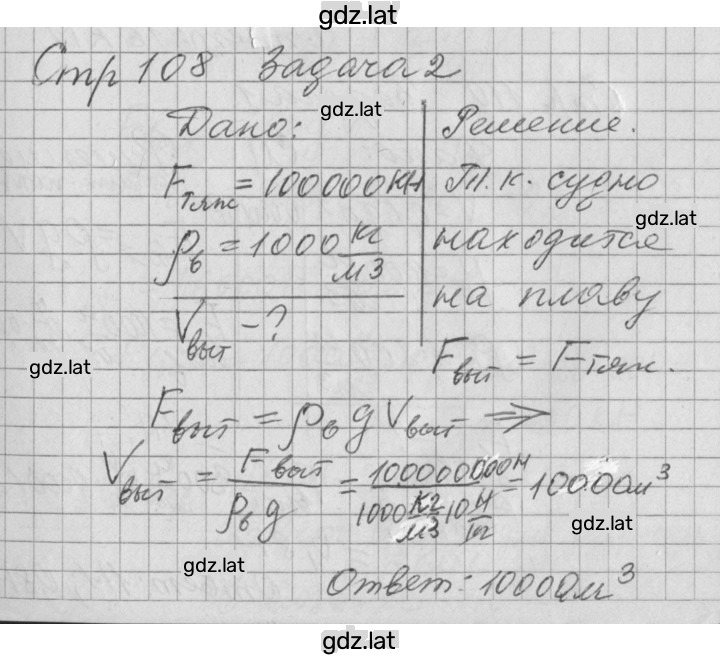 gdz.lat
Стр 108 Задача 2
gdz.lat
Дано:
Fтяж = 100000кН
ρв = 1000 кг/м3
Vвыт - ?
Решение.
Т.к. судно
gdz.lat
находится
на плаву
Fвыт = Fтяж.
gdz.lat
Fвыт = ρв g Vвыт ⇒
Vвыт = Fвыт / ρв g = 100000000н / 1000 кг/м3 10 Н/кг = 10000м³
gdz.lat
gdz.lat
Ответ: 10000м³
gdz.lat